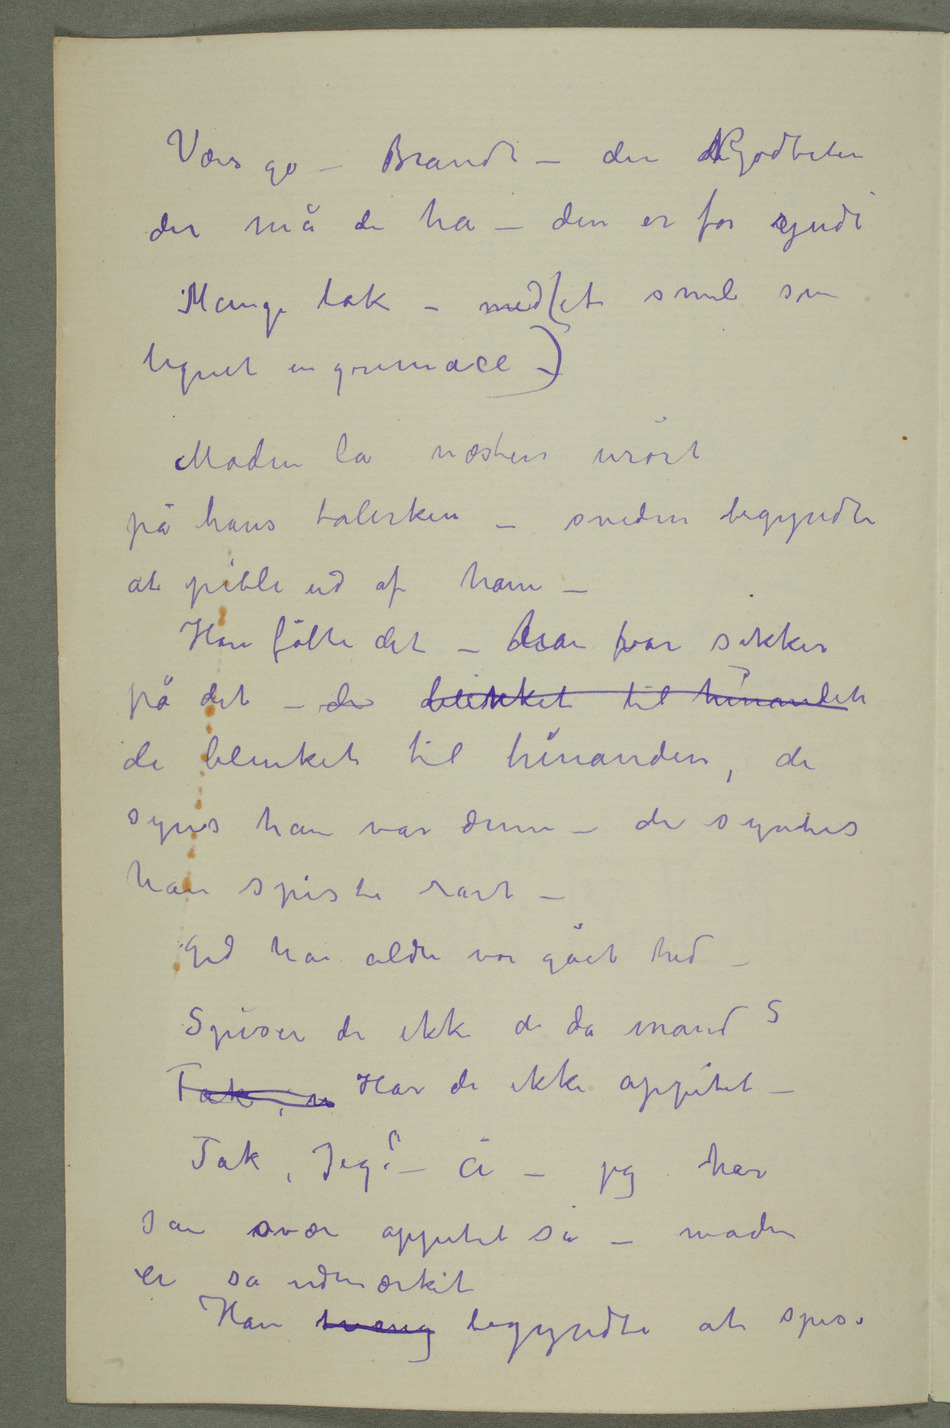 Værs go – Brandt – den Godbeten
der må de ha – den er for syndt
Mange tak – med (et smil som
lignet en grimace –)
Maden la næsten urört
på hans talerken – sveden begyndte
at pible ud af ham –
Han fölte det – han var sikker
på det – de blinket til hinanden
de blinket til hinanden, de
synes han var dum – de syntes
han spiste rart –
Gid han aldri var gået hid –
Spiser de ikke de da mand ?
Tak, n Har de ikke appitet –
Tak, Jeg? – å – jeg har
san svær appetet så – maden
er så udmærkit
Han tvang begyndte at spise